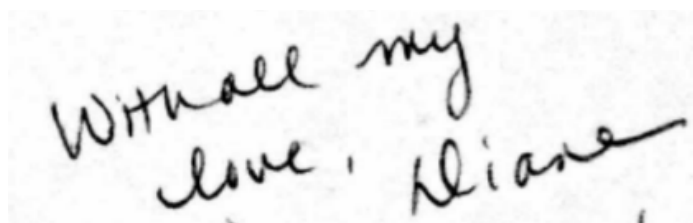 With all my
love, Diane